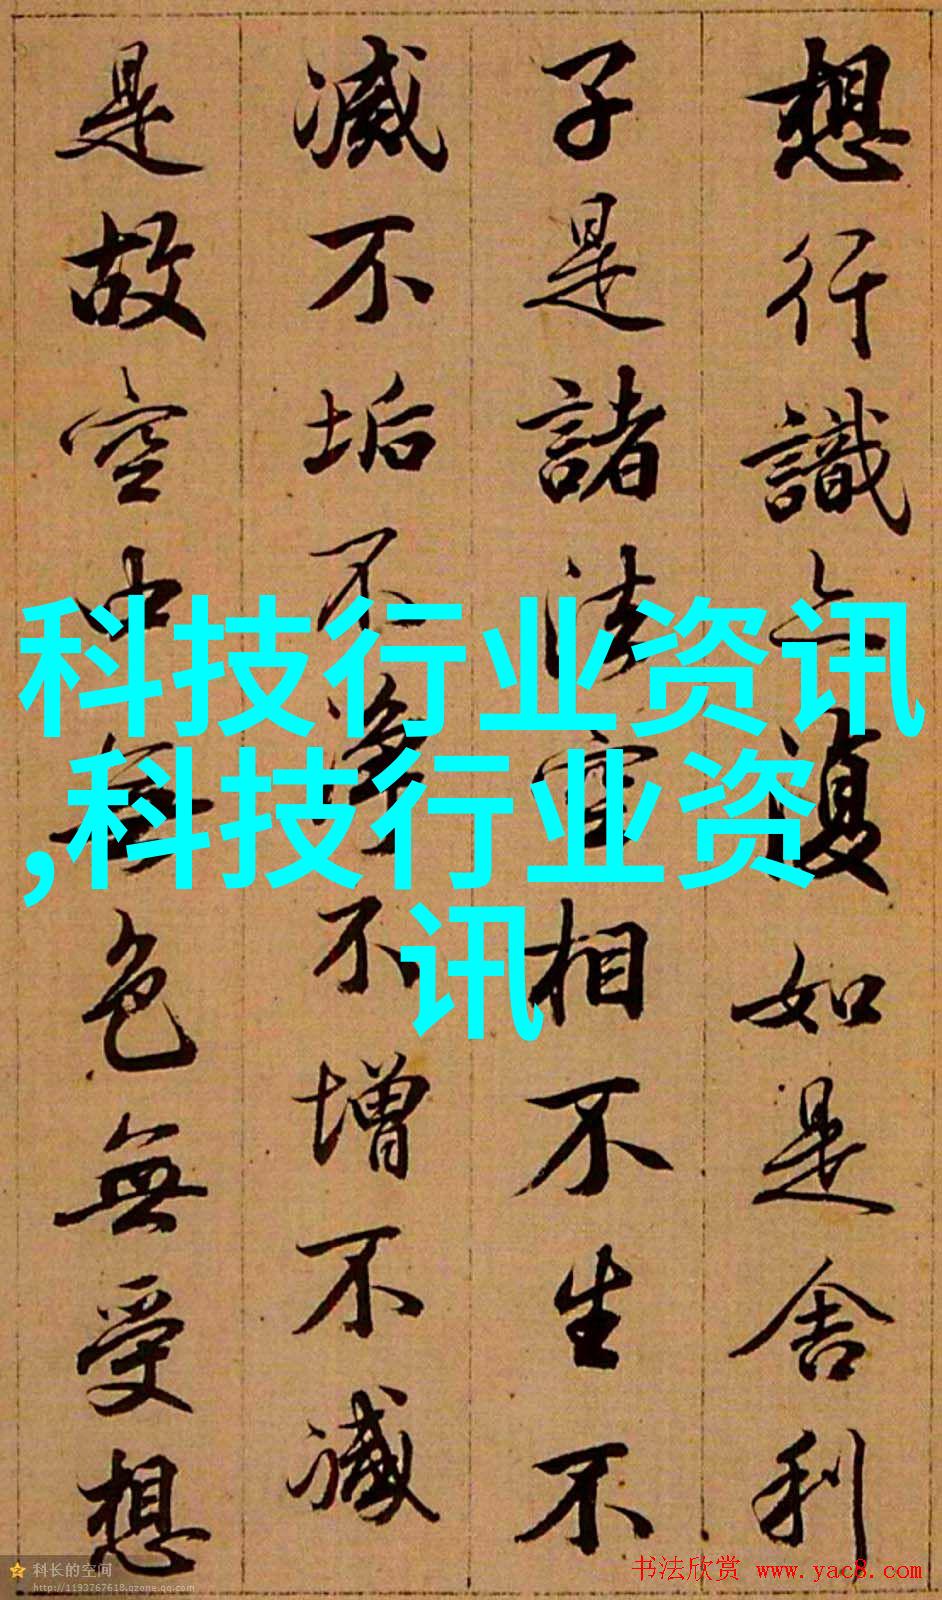 想行識亦復如是舍利
子是諸法空相不生不
滅不垢不淨不增不減
是故空中無色無受想
科技行业资讯
,科技行业资
讯
科长的空间
http://1193767618.qzone.qq.com
书法欣赏 www.yac8.com